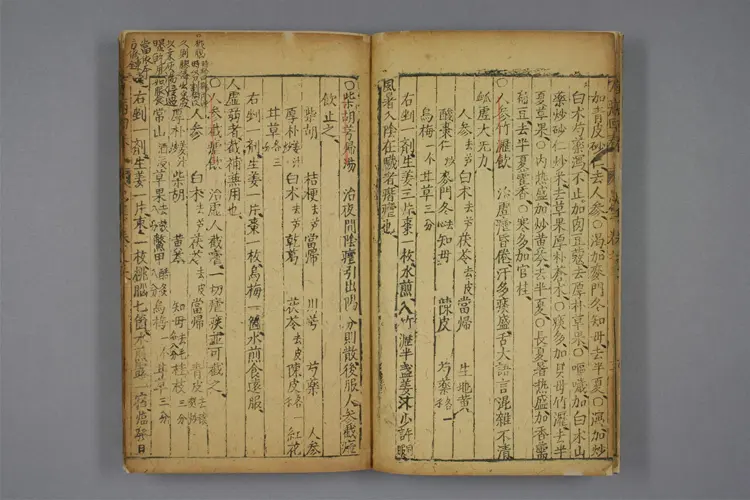 加青皮砂仁去人参○渴加麥門冬知母去半夏○瀉加炒
白术芍藥瀉不止加肉豆蔻去厚朴草果○嘔噦加白木山
藥炒砂仁炒米去草果厚朴蒼术○痰多加貝母竹瀝去半
夏草果○内熱盛加炒黄芩去半夏○長夏暑熱盛加香薷
扁豆去半夏藿香○寒多加官桂
○人参竹瀝飲 治虚瘧昏倦汗多痰盛舌大語言混雜不清
脉虚大无力
人参去芦 白木去芦 茯苓去皮 當歸 生地黄
酸棗仁炒 麥門冬去心 知母 陳皮 芍藥各一
烏梅一个 甘草三分
右剉一剤生姜三片棗一枚水煎入竹瀝半盞姜汁少許
風暑入陰在臟者痟瘧也
○柴胡芎歸湯 治夜間陰瘧引出陽分則散後服人参截瘧
飲止之
柴胡 桔梗去芦 當歸 川芎 芍藥 人参
厚朴姜汁炒 白木去芦 乾葛 茯苓去皮 陳皮各 紅花
甘草各三分
右剉一剤生姜一片棗一枚烏梅一箇水煎食遠服
○人参截瘧飲 治虚人截瘧一切瘧疾並可截之
人虚弱者截補兼用也
人参 白木去芦 茯苓去皮 當歸 青皮去穰
厚朴姜汁炒 柴胡 黄芩 知母去毛 桂枝三分
常山酒 草果去 鱉甲 烏梅一个 甘草三分
右剉一剤生姜一片棗一枚桃腦七箇水煎露一宿臨發日